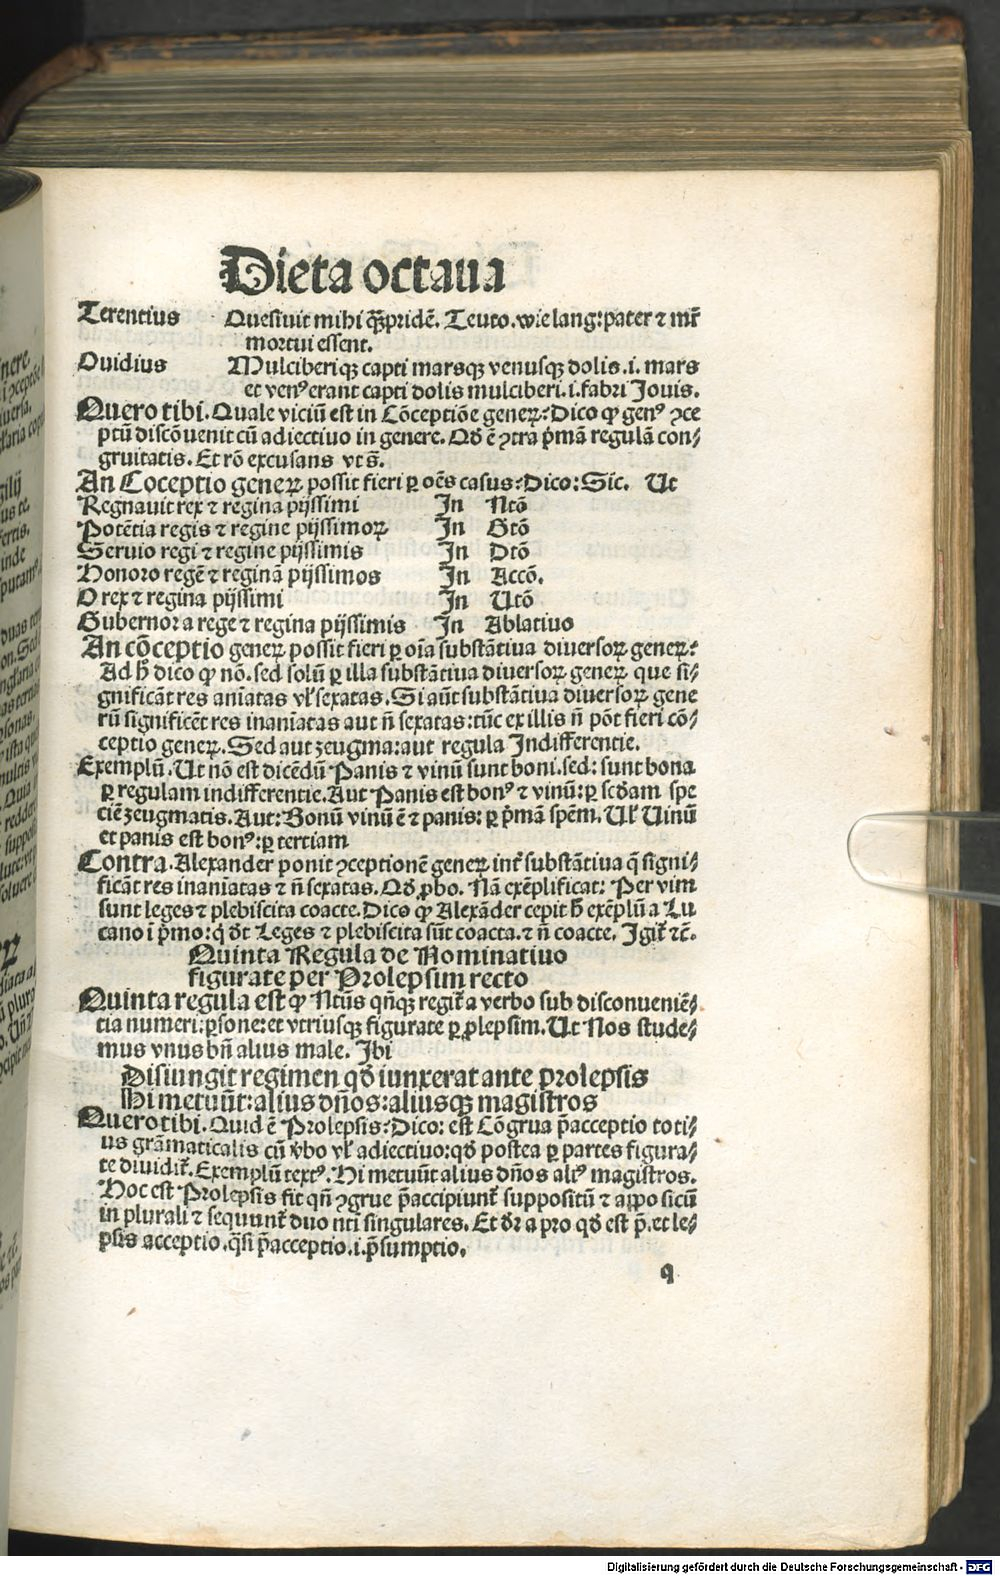 Dieta octaua
Terentius Quesiuit mihi qͣꝫpridē. Teuto. wie lang: pater ⁊ mr̄
mortui essent.
Ouidius Mulciberiqꝫ capti marsqꝫ venusqꝫ dolis .i. mars
et venꝰ erant capti dolis mulciberi .i. fabri Jouis.
Quero tibi. Quale viciū est in Cōceptiōe generꝝ? Dico ꝙ genꝰ ↄce
ptū discōuenit cū adiectiuo in genere. Qd̄ ē ↄtra p̄mā regulā con⸗
gruitatis. Et rō excusans vt s̄.
An Coceptio generꝝ possit fieri ꝑ oēs casus? Dico: Sic. Ut
Regnauit rex ⁊ regina pijssimi In Ntō
Potētia regis ⁊ regine pijssimoꝝ In Gtō
Seruio regi ⁊ regine pijssimis In Dtō
Honoro regē ⁊ reginā pijssimos In Accō.
O rex ⁊ regina pijssimi In Utō
Gubernor a rege ⁊ regina pijssimis In Ablatiuo
An cōceptio generꝝ possit fieri ꝑ oīa substātiua diuersoꝝ generꝝ?
Ad h̄ dico ꝙ nō. sed solū ꝑ illa substātiua diuersoꝝ generꝝ que si⸗
gnificāt res aniātas vl̄ sexatas. Si aūt substātiua diuersoꝝ gene
rū significēt res inaniātas aut n̄ sexatas: tūc ex illis n̄ pōt fieri cō⸗
ceptio generꝝ. Sed aut zeugma: aut regula Indifferentie.
Exemplū. Ut nō est dicēdū Panis ⁊ vinū sunt boni. sed: sunt bona
ꝑ regulam indifferentie. Aut Panis est bonꝰ ⁊ vinū: ꝑ scd̄am spe
ciē zeugmatis. Aut: Bonū vinū ē ⁊ panis: ꝑ p̄mā spēm. Ul̄ Uinū
et panis est bonꝰ: ꝑ tertiam
Contra. Alexander ponit ↄceptionē generꝝ int̄ substātiua q̄ signi⸗
ficāt res inaniātas ⁊ n̄ sexatas. Qd̄ ꝓbo. Nā exēplificat: Per vim
sunt leges ⁊ plebiscita coacte. Dico ꝙ Alexāder cepit h̄ exēplū a Lu
cano i p̄mo: q̄ dt̄ Leges ⁊ plebiscita sūt coacta. ⁊ n̄ coacte. Igit̄ ⁊c̄.
Quinta Regula de Nominatiuo
figurate per Prolepsim recto
Quinta regula est ꝙ Ntūs qn̄qꝫ regit̄ a verbo sub disconueniē⸗
tia numeri: ꝑsone: et vtriusqꝫ figurate ꝑ ꝓlepsim. Ut Nos stude⸗
mus vnus bn̄ alius male. Ibi
Disiungit regimen qd̄ iunxerat ante prolepsis
Hi metuūt: alius dn̄os: aliusqꝫ magistros
Quero tibi. Quid ē Prolepsis? Dico: est Cōgrua p̄acceptio toti⸗
us grāmaticalis cū v̄bo vl̄ adiectiuo: qd̄ postea ꝑ partes figura⸗
te diuidit̄. Exemplū textꝰ. Hi metuūt alius dn̄os alꝰ magistros.
Hoc est Prolepsis fit qn̄ ↄgrue p̄accipiunt̄ suppositū ⁊ appositū
in plurali ⁊ sequunt̄ duo ntī singulares. Et dr̄ a pro qd̄ est p̄. et le⸗
psis acceptio. q̄si p̄acceptio .i. p̄sumptio.
q
Digitalisierung gefördert durch die Deutsche Forschungsgemeinschaft - DFG